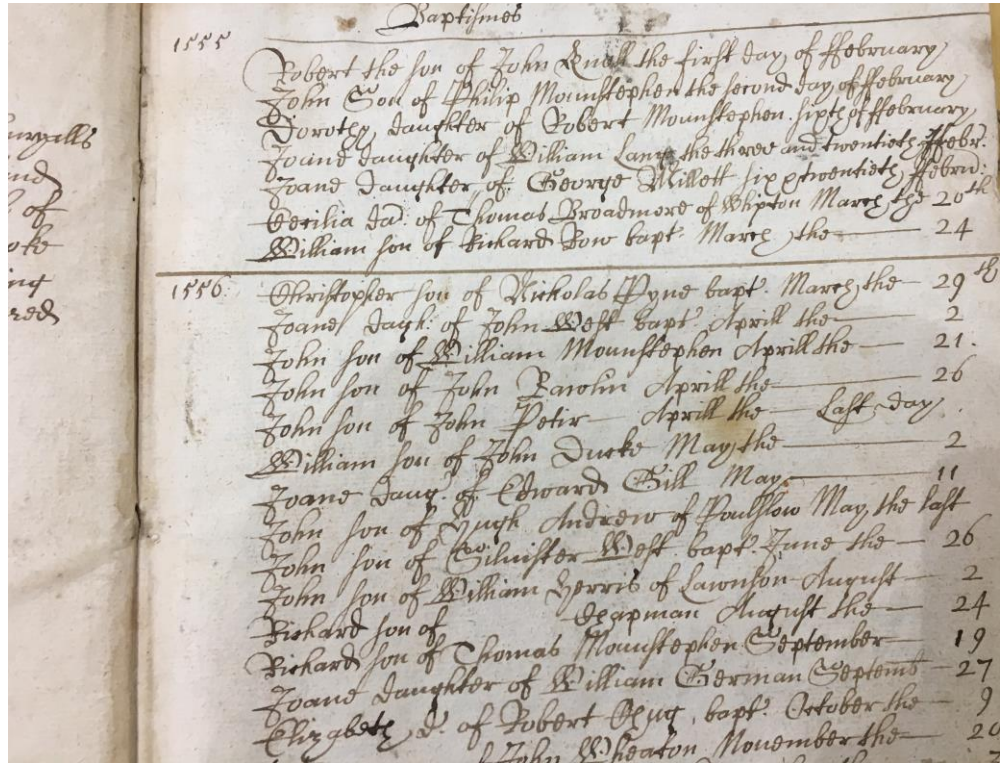 Baptismes
1555
Robert the son of John Quall the first day of ffebruary
John Son of Philip Mounstephen the second day of ffebruary
Dorothy daughter of Robert Mounstephen sixth of ffebruary
Joane daughter of William Lang the three and twentieth ffebr:
Joane Daughter of George Millett six twentieth ffebru:
Cecilia Da: of Thomas Broadmore of Whipton March the 20th
William son of Richard Bow bapt. March the 24
1556
Christopher son of Nicholas Pyne bapt. March the 29th
Joane Dagh: of John West bapt. Aprill the 2
John son of William Mounstephen Aprill the 21.
John son of John Rawlin Aprill the 26
John son of John Petir Aprill the Last day
William son of John Ducke May the 2
Joane Daug. of Edward Gill May 11
John son of Hugh Andrew of Poulslow May the last
John son of Silvister West bapt. June the 26
John son of William Herris of Lawnson August 2
Richard son of Chapman August the 24
Richard son of Thomas Mounstephen September 19
Joane Daughter of William German Septemb 27
Elizabeth D. of Robert bapt. October the 9
John Wheaton November the 20
urgalls
of